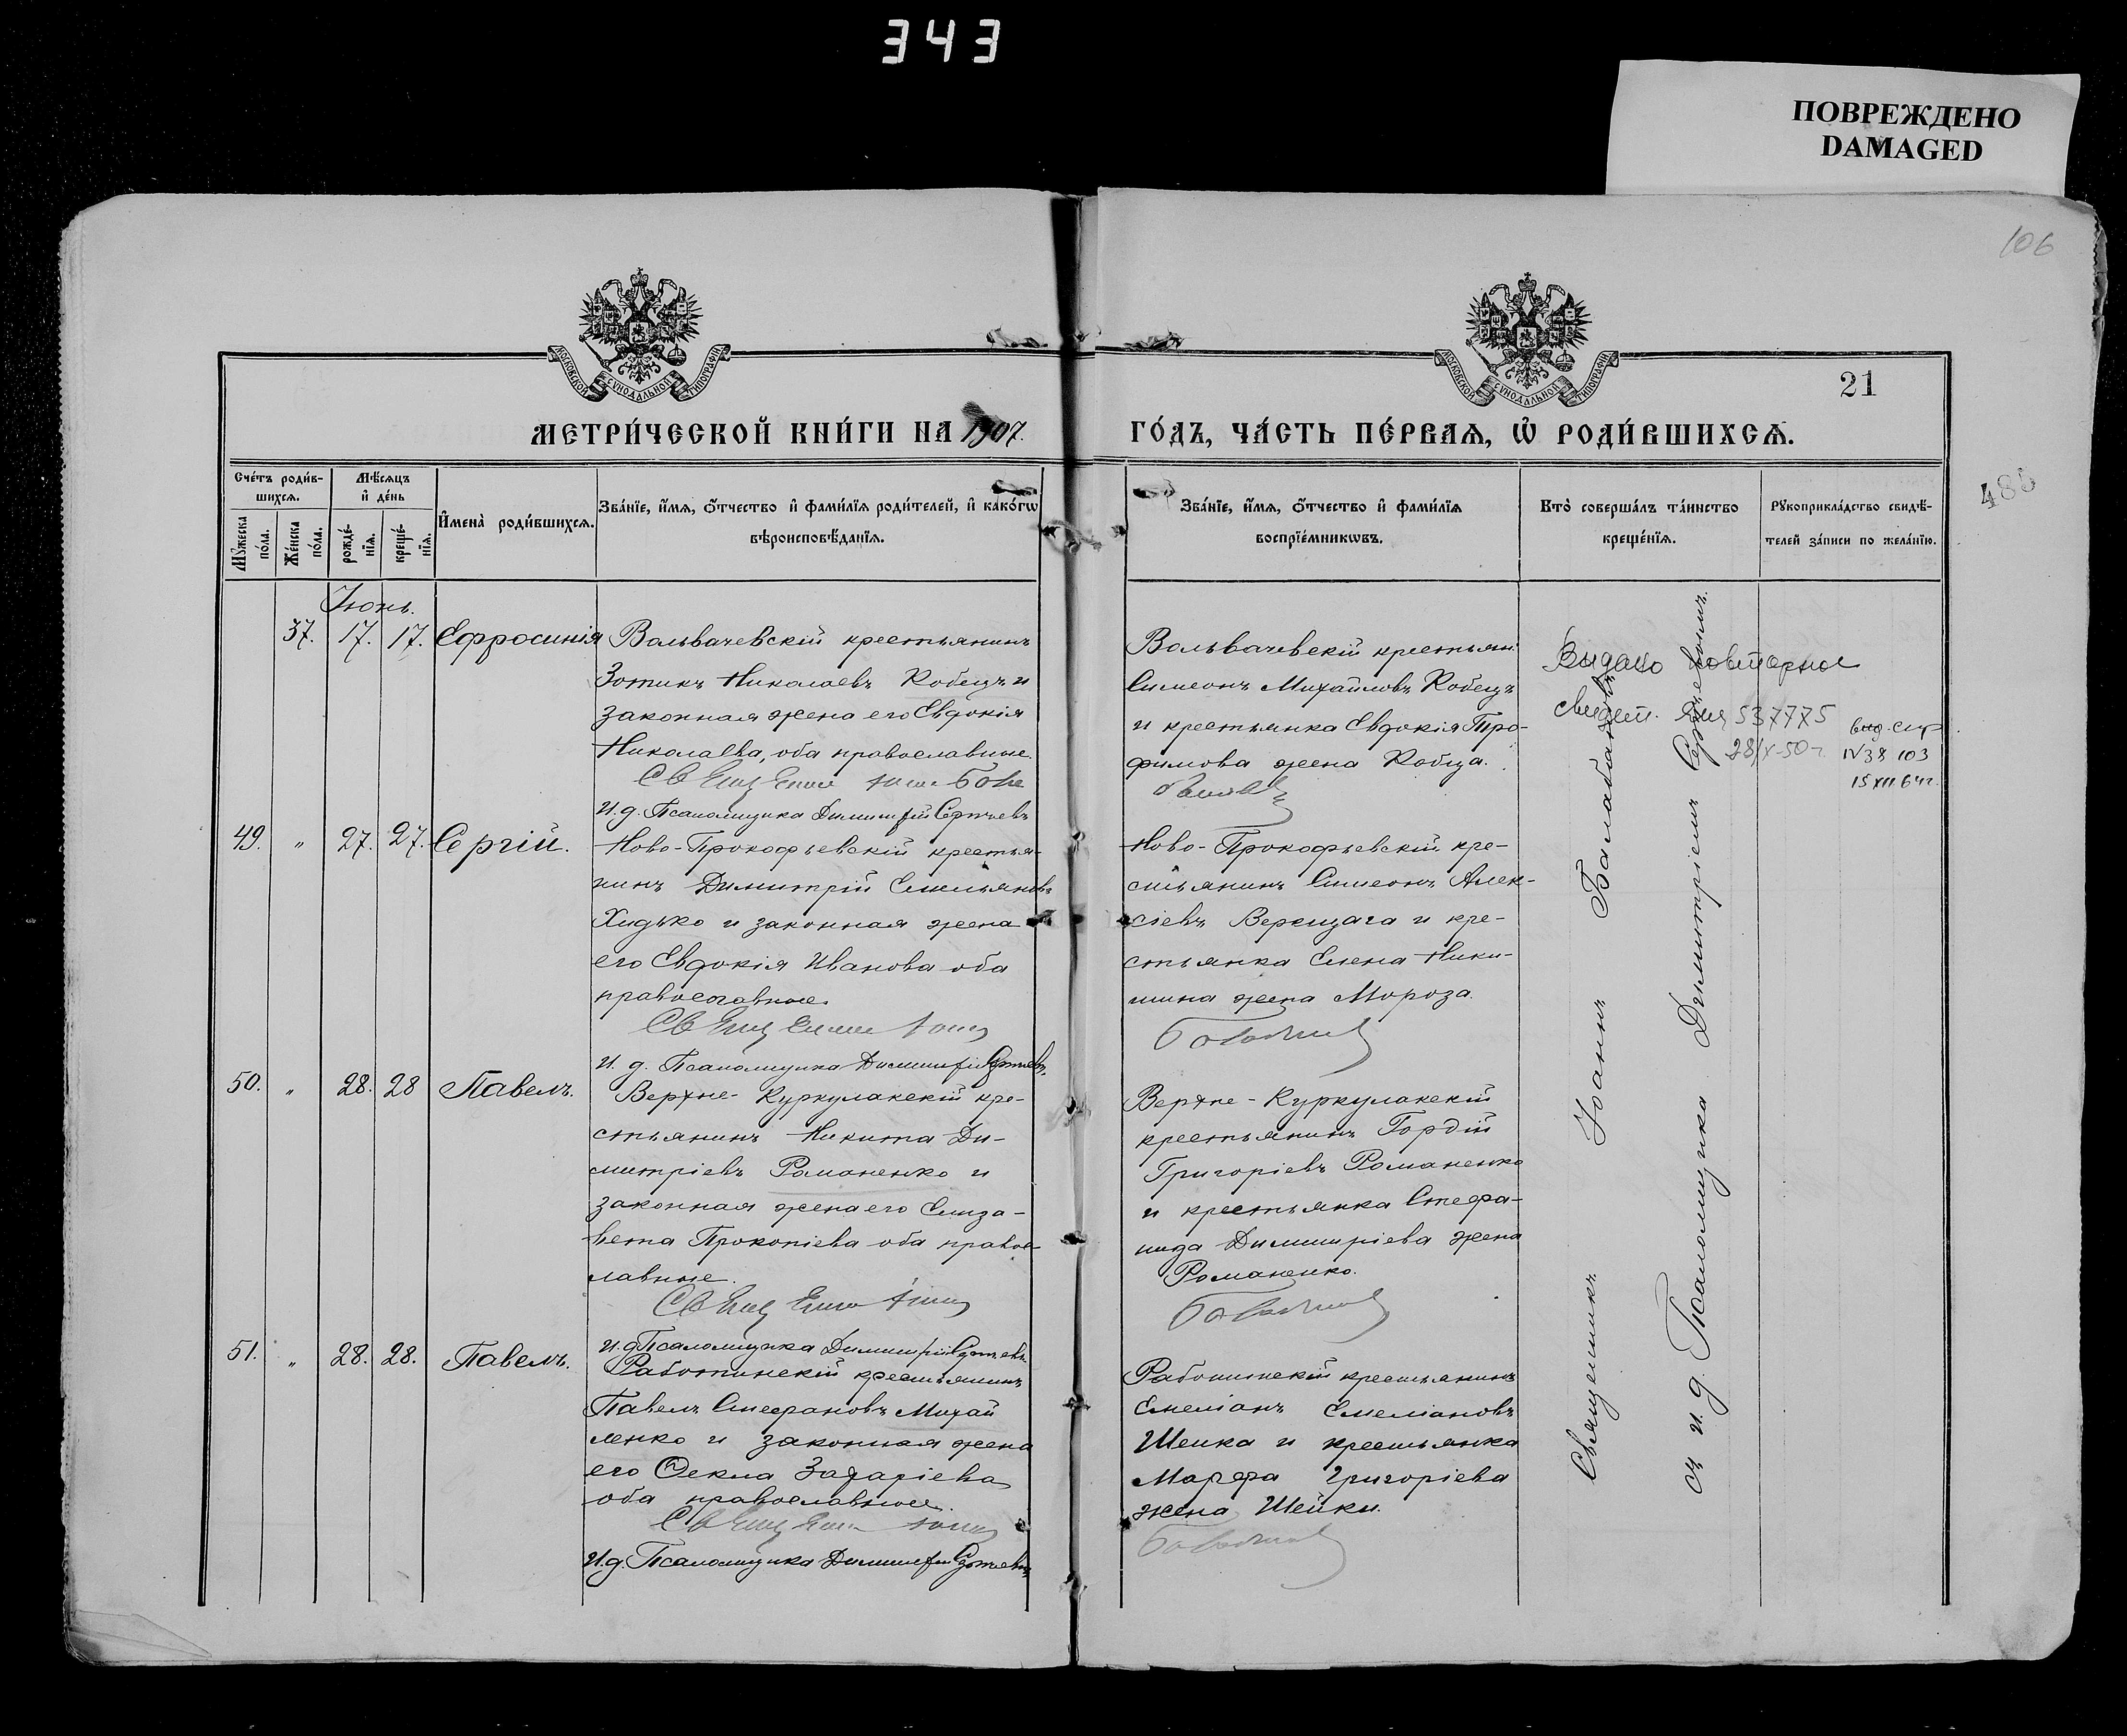 343
ПОВРЕЖДЕНО
DAMAGED
106
МОСКОВСКОЙ СУНОДАЛЬНОЙ ТИПОГРАФІИ
МОСКОВСКОЙ СУНОДАЛЬНОЙ ТИПОГРАФІИ
21
МЕТРИ́ЧЕСКОЙ КНИ́ГИ НА 1907.
ГО́ДЪ, ЧА́СТЬ ПЕ́РВАѦ, Ѡ҆ РОДИ́ВШИХСѦ.
485
Сче́тъ роди́в-
шихсѧ.
Мꙋжеска по́ла.
Же́нска по́ла.
Мѣ́сѧцъ
и҆ де́нь
рожде́-
нїѧ.
креще́-
нїѧ.
И҆мена̀ роди́вшихсѧ.
Зва́нїе, и҆́мѧ, ѻ҆́тчество и҆ фами́лїѧ роди́телей, и҆ како́гѡ
вѣроисповѣ́данїѧ.
Зва́нїе, и҆́мѧ, ѻ҆́тчество и҆ фами́лїѧ
воспрїе́мникѡвъ.
Кто̀ соверша́лъ та́инство
креще́нїѧ.
Рꙋкоприкла́дство свидѣ́-
телей за́писи по жела́нїю.
Іюнь.
37. 17. 17. Ефросинія
Вольвачевскій крестьянинъ
Зотикъ Николаевъ Кобецъ и
законная жена его Евдокія
Николаева, оба православные.
И.д. Псаломщика Димитрій Сергѣевъ
Вольвачевскій крестьян.
Симеонъ Михайловъ Кобецъ
и крестьянка Евдокія Тро-
фимова жена Кобца.
Видано повторное
свидет. 537775
28/X-50 г.
IV 38 103
15 XII 64 г.
49. " 27. 27. Сергій.
Ново-Прокофьевскій крестья-
нинъ Димитрій Емельяновъ
Хидько и законная жена
его Евдокія Иванова оба
православные.
И. д. Псаломщика Димитрій Сергѣевъ.
Ново-Прокофьевскій кре-
стьянинъ Симеонъ Алек-
сіевъ Верещага и кре-
стьянка Елена Ники-
тина жена Мороза.
50. " 28. 28 Павелъ.
Верхне-Куркулакскій кре-
стьянинъ Никита Ди-
митріевъ Романенко и
законная жена его Елиза-
вета Прокопіева оба право-
славные.
И.д. Псаломщика Димитрій Сергѣевъ.
Верхне-Куркулакскій
крестьянинъ Гордій
Григоріевъ Романенко
и крестьянка Стефа-
нида Димитріева жена
Романенко.
51. " 28. 28. Павелъ.
Работинскій крестьянинъ
Павелъ Стефановъ Михай
ленко и законная жена
его Ѳекла Захаріева
оба православные.
И.д. Псаломщика Димитрій Сергѣевъ
Работинскій крестьянинъ
Емеліанъ Емеліановъ
Шейка и крестьянка
Марѳа Григоріева
жена Шейки.
Священникъ Іоаннъ Балабановъ
съ и. д. Псаломщика Димитріемъ Сергѣевымъ.